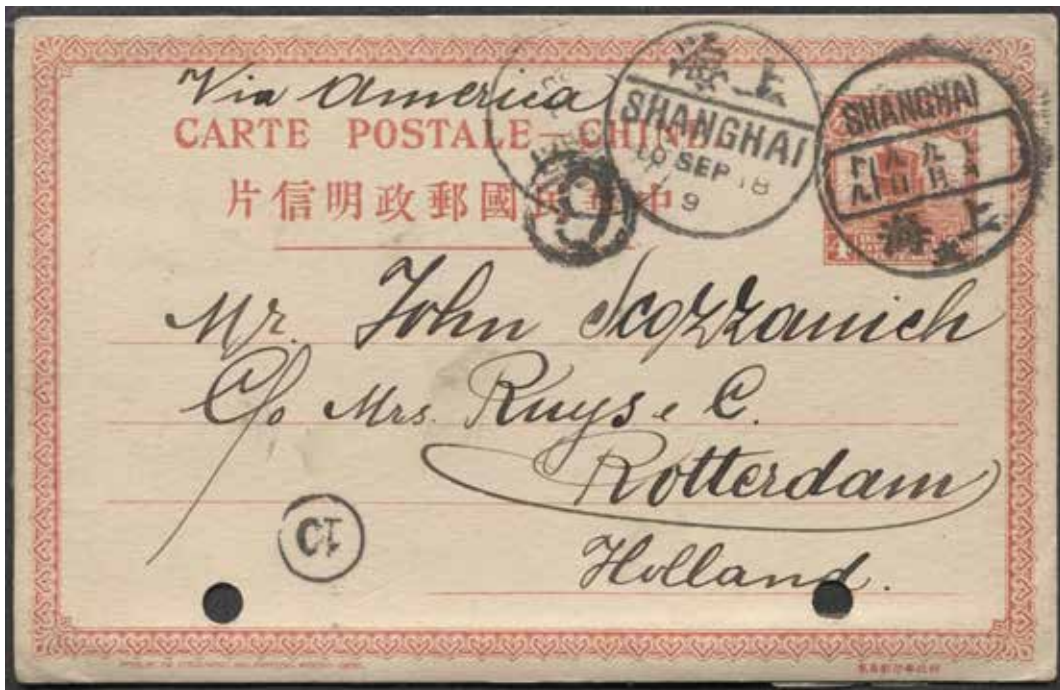 Via America
CARTE POSTALE–CHINE
中華民國郵政明信片
上海
SHANGHAI
10 SEP 18
9
SHANGHAI
上海
6
4
Mr. John Scozzanich
C/o Mrs. Ruys e C.
Rotterdam
Holland.
10